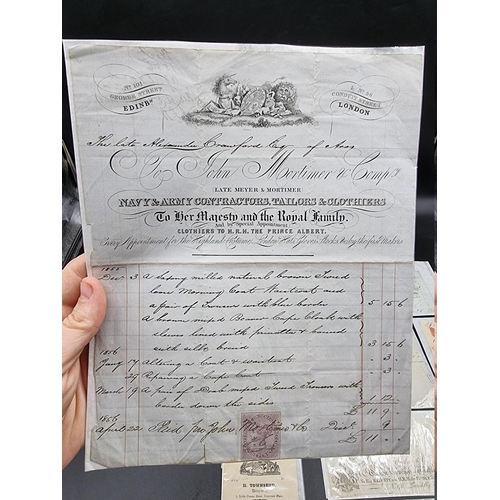 No 101
GEORGE STREET
EDINBR
& No 36
CONDUIT STREET
LONDON
The late Alexander Crawford Esq of
To John Mortimer & Compy
(LATE MEYER & MORTIMER)
NAVY & ARMY CONTRACTORS, TAILORS & CLOTHIERS
To Her Majesty and the Royal Family.
And by Special Appointment
CLOTHIERS TO H.R.H. THE PRINCE ALBERT.
Every Appointment for the Highland Costume, London Hats, Gloves, Stocks &c by the first Makers
1855
Decr 3 A milled natural brown Tweed
Morning Coat Waistcoat and
a pair of Trousers with blue border 5 15 6
A brown mixed Beaver Cape Cloak with
sleeves lined with and bound
with silk 3 15 6
1856
Jany 17 Altering a Coat & waistcoat - 3 -
29 Repairing a Cape Coat - 3 -
March 19 A pair of Drab mixed Tweed Trousers with
border down the sides 12
£ 11 9
1856
April 22 Paid for John Mortimer & Co 9
£ 11
H. TOWNSEND